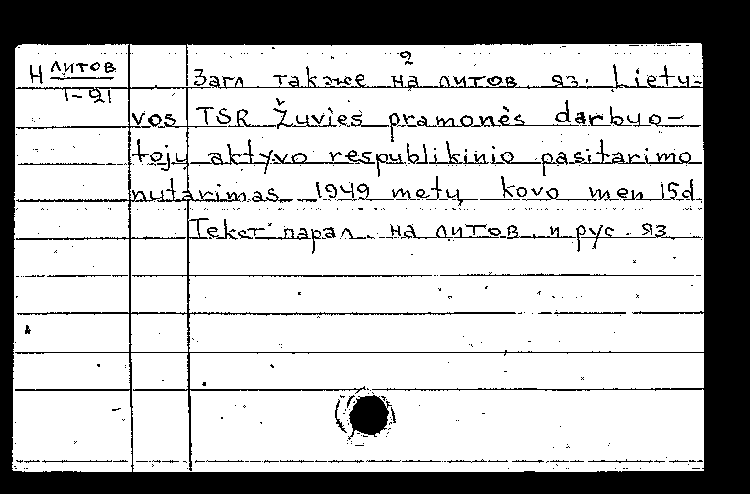 2
Н литов
1-21
Загл также на литов. яз. Lietu-
vos TSR Žuvies pramonės darbuo-
tojų aktyvo respublikinio pasitarimo
nutarimas 1949 metų kovo men 15d
Текст парал. на литов. и рус. яз.